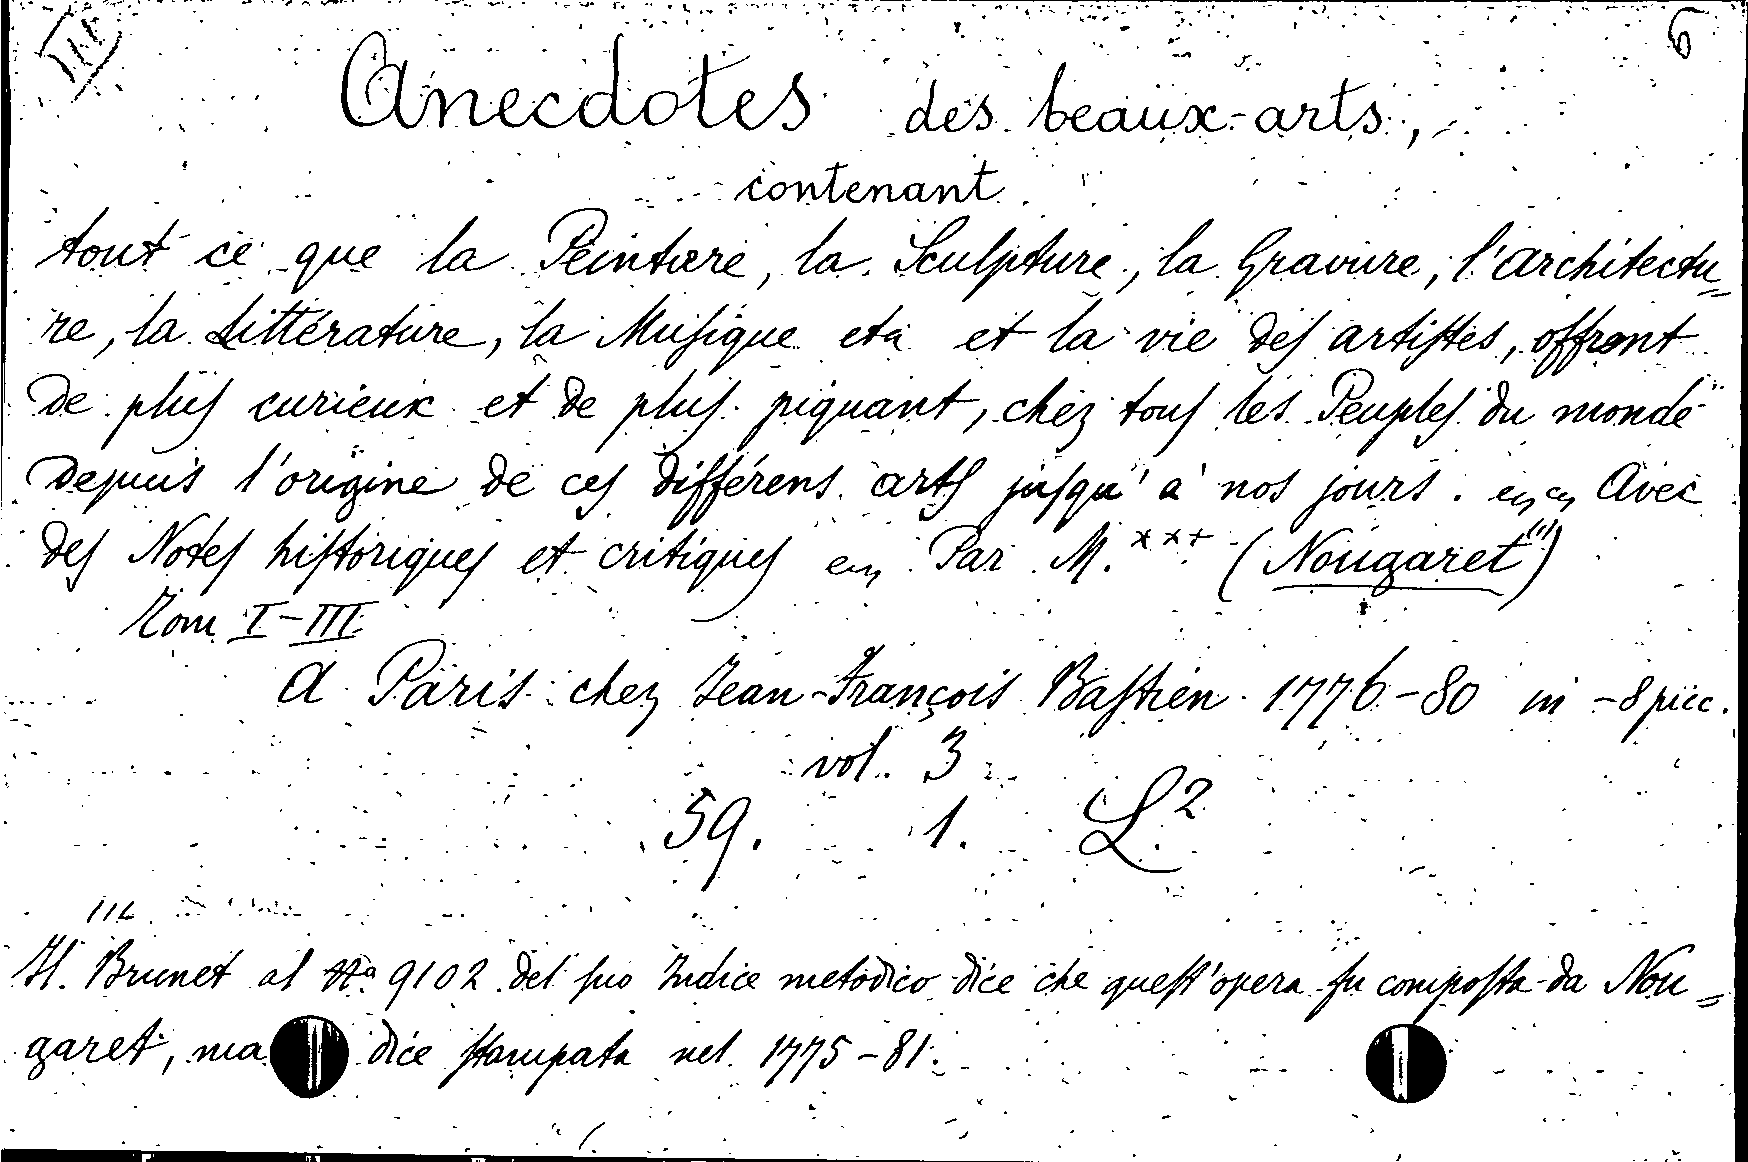 III 6
Anecdotes des beaux-arts,
contenant
tout ce que la Peinture, la Sculpture, la Gravure, l'architectu=
re, la Littérature, la Musique etc et la vie des artistes, offrent
de plus curieux et de plus piquant, chez tous les Peuples du monde
depuis l'origine de ces différens arts jusqu'à nos jours. Avec
des Notes historiques et critiques Par M.*** (Nougaret (1))
Tom I-III
A Paris chez Jean-François Bastien 1776-80 in-8 picc.
vol. 3
59. 1. L2
Il Brunet al No 9102 del suo Indice metodico dice che quest'opera fu composta da Nou=
garet, ma dice stampata nel 1775-81.